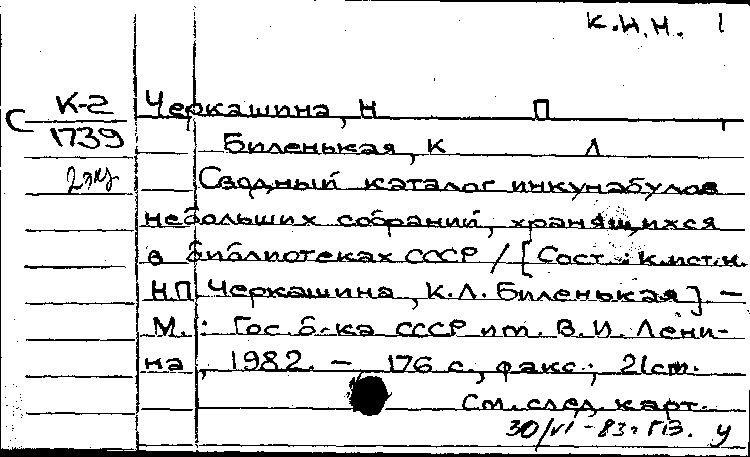 К.И.Н. 1
С К-2 Черкашина, Н П
1739 Биленькая, К Л
2 экз Сводный каталог инкунабулов
небольших собраний, хранящихся
в библиотеках СССР / [Сост.: к.ист.н.
Н.П. Черкашина, К.Л. Биленькая]. —
М.: Гос. б-ка СССР им. В.И. Лени-
на, 1982. — 176 с., факс.; 21 см.
См. след. карт.
30/VI-83г. ГВ. у